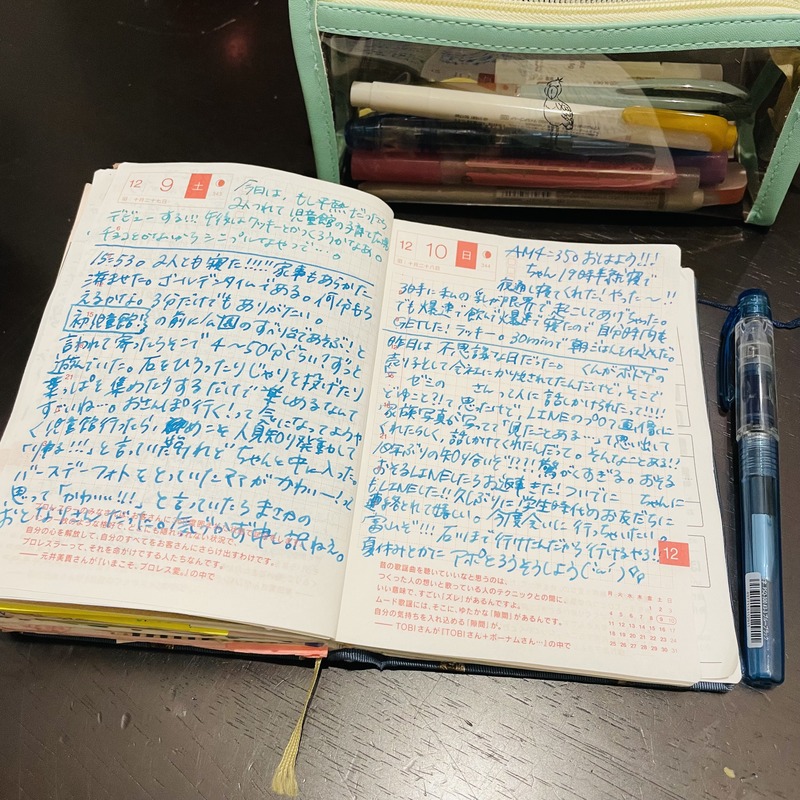 12 9 土
「今日は、もし平熱だったら
2人つれて児童館の子育て広場
デビューする!! 午後はクッキーとかつくろうかなあ。
15:53。2人とも寝た!!!!! 家事もあらかた
済ませた。ゴールデンタイムである。何分もら
えるかな。3分だけでもありがたい。
初児童館!! の前に公園のすべり台であそぶ!と
言われて寄ったらそこで4〜50分ぐらいずっと
遊んでいた。石をひろったりじゃりを投げたり
葉っぱを集めたりするだけで楽しめるなんて
すごいね〜。おさんぽ行く!って気になってようや
く児童館行ったら、人見知り発動して
と言っていたけれどちゃんと中に入った。
バースデーフォトをとっていたママがかわいー!っ
思って「かわいい!!!」と言っていたらまさかの
おとなりさんだった。気づかず申し訳ねえ。
自分の心を解放して、自分のすべてをお客さんにさらけ出すわけです。
プロレスラーって、それを命がけでする人たちなんです。
—— 元井美貴さんが『いまこそ、プロレス愛。』の中で
12 10 日
AM4:35。おはよう!!!
ちゃん19時半就寝で
夜通し寝てくれた!やった〜!!
3時に私の乳が限界で起こしてあげちゃった。
でも爆速で飲んで爆速で寝たので自分時間も
GETした!ラッキー。30minで朝ごはんも仕込めた。
昨日は不思議な日だった。 くんがボドゲの
売り子として会社にかり出されてたんだけど、そこで
ゼミの さんって人に話しかけられたって!!!!
どゆこと?!って思ったけど、LINEのプロフ画像に
家族写真が写ってて「見たことある…」って思い出して
くれたらしく、話しかけてくれたんだって。そんなことある!?
10年ぶりの知り合いぞ!!!! 驚がくすぎる。おそる
おそるLINEしたらお返事きた!ついでに ちゃんに
もLINEした!! 久しぶりに学生時代のお友だちに
連絡とれて嬉しい。今度会いに行っちゃいたい。
富山いぞ!!! 石川まで行けたんだから行けるやろ!!
夏休みとかに アポとろうそうしよう
12
昔の歌謡曲を聴いていいなと思うのは、
つくった人の想いと歌っている人のテクニックとの間に、
いい意味で、すごい「ズレ」があるんですよ。
ムード歌謡には、そこに、ゆたかな「隙間」があるんです。
自分の気持ちを入れ込める「隙間」が。
—— TOBIさんが『TOBIさん+ボーナムさん…』の中で
日 月 火 水 木 金 土
1 2
3 4 5 6 7 8 9
10 11 12 13 14 15 16
17 18 19 20 21 22 23
24 25 26 27 28 29 30
31